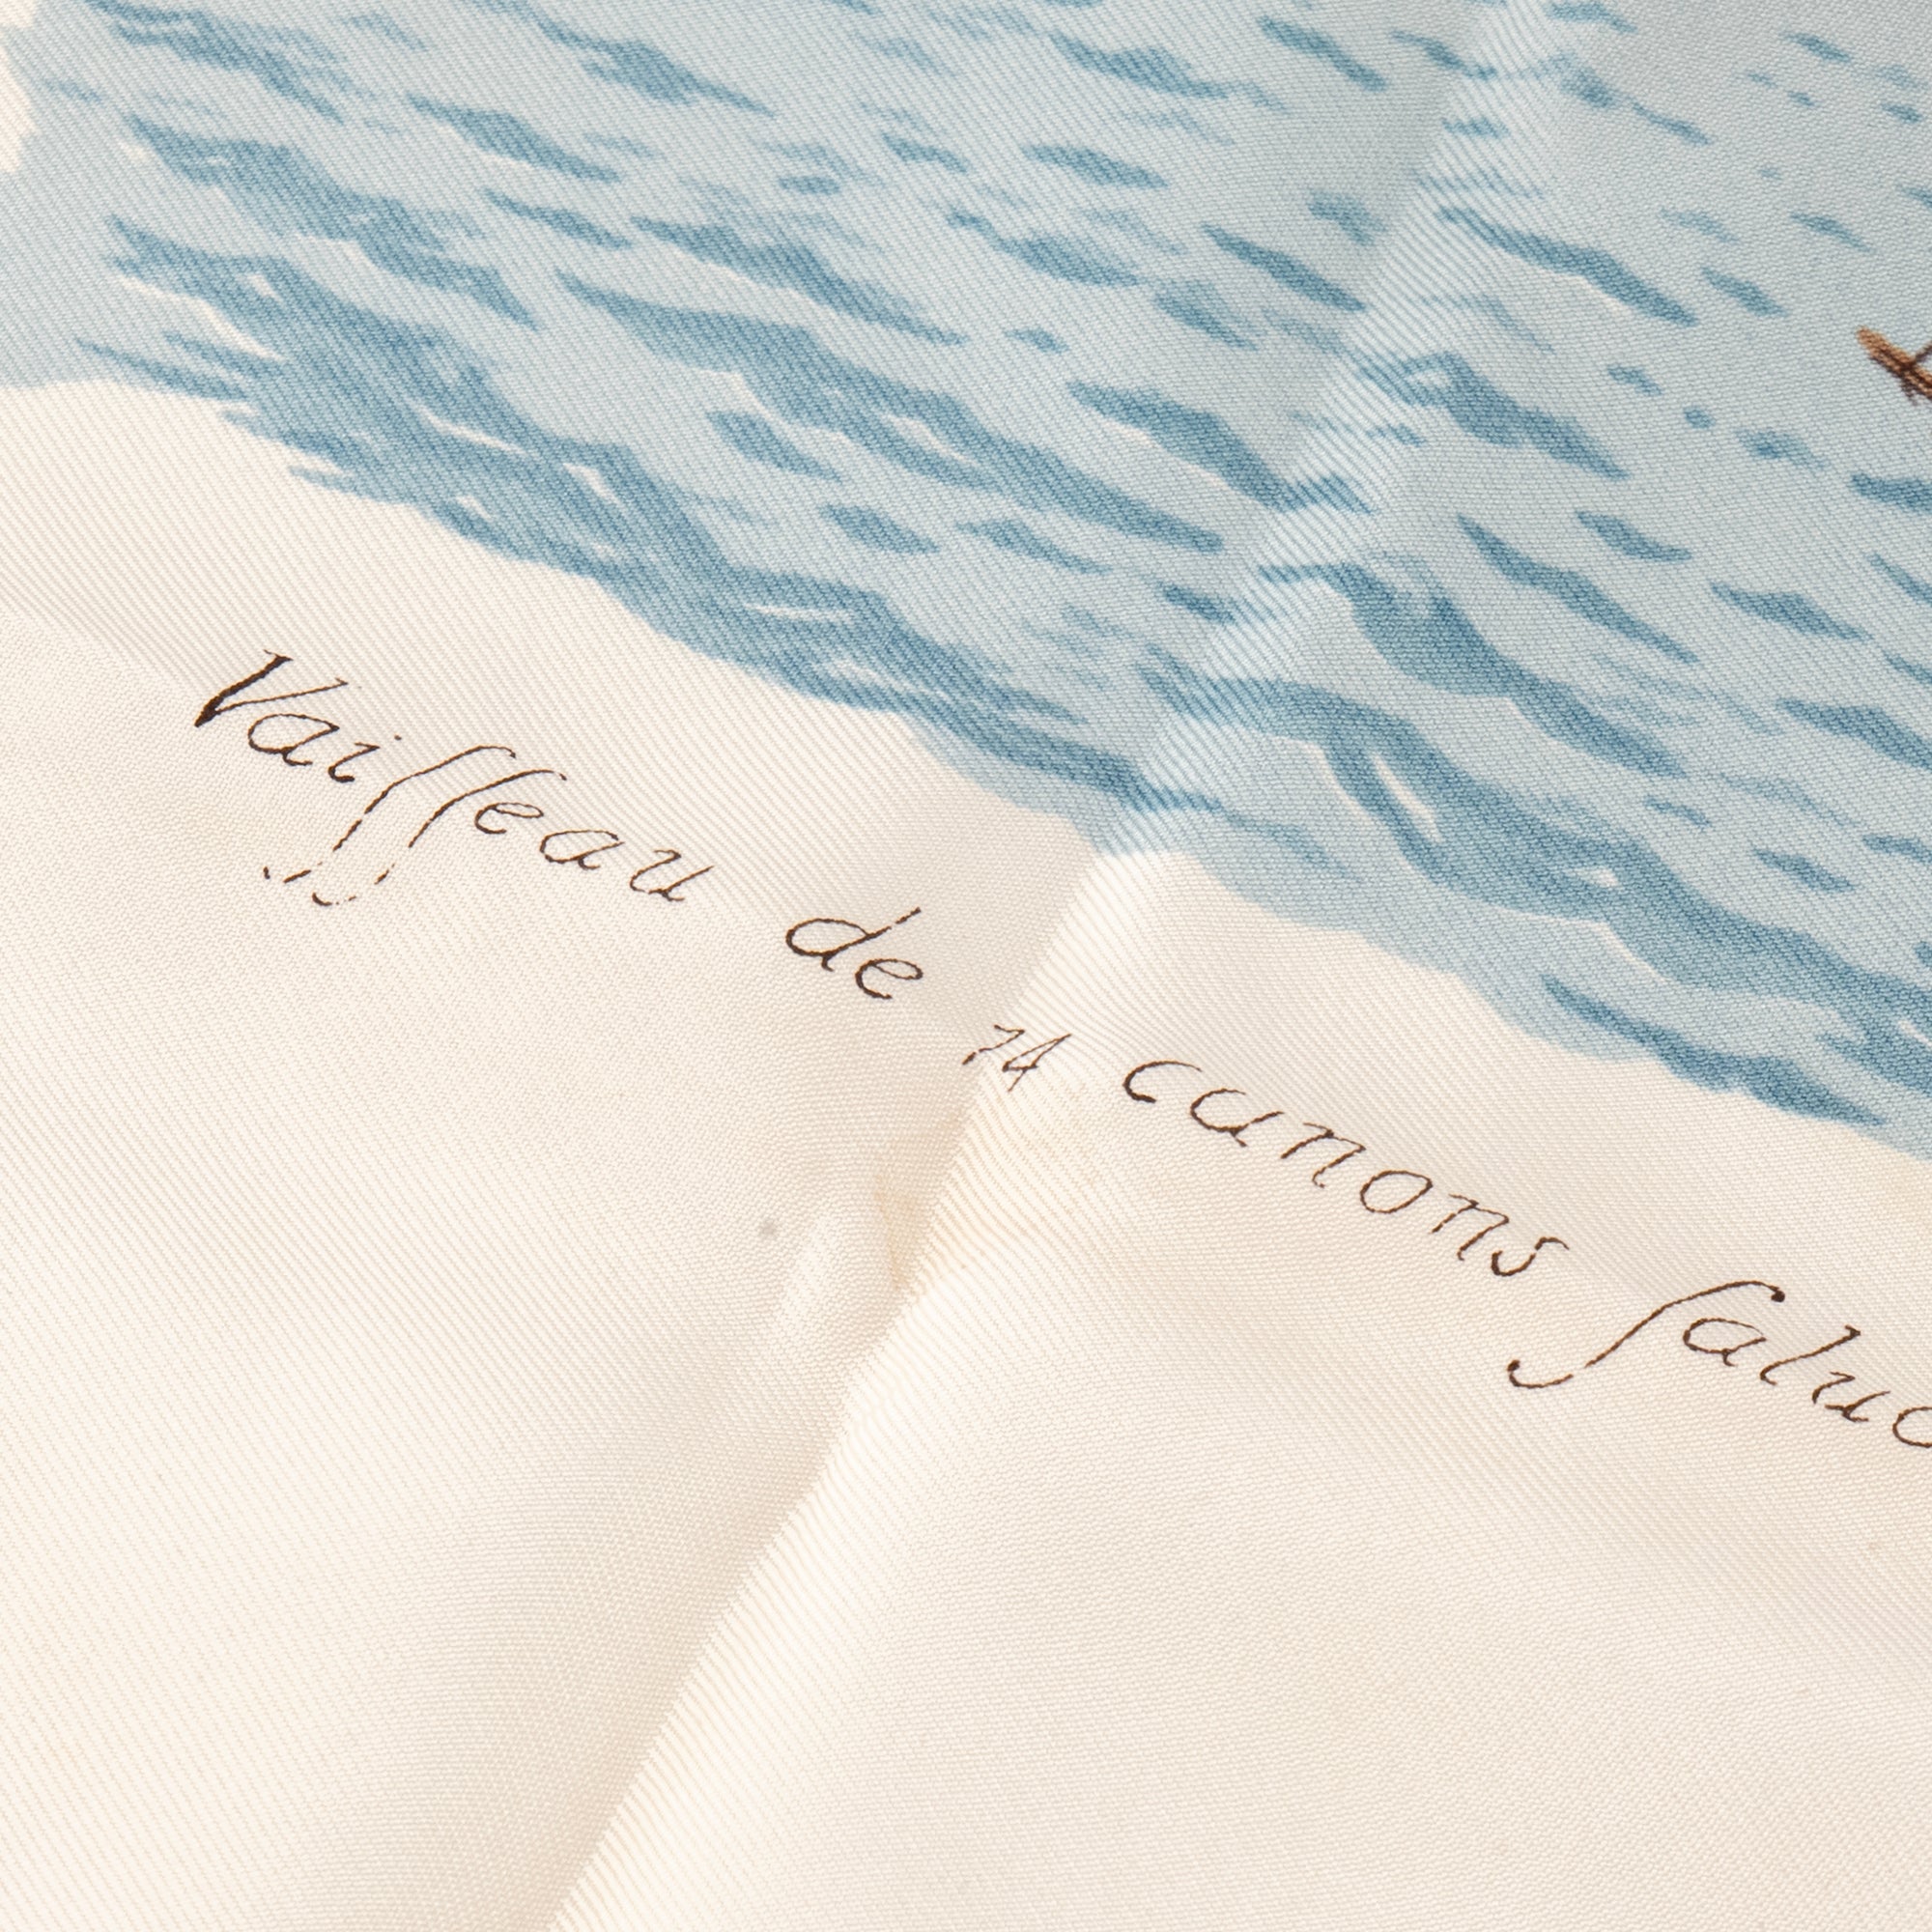 Vaiſſeau de 74 canons ſalue